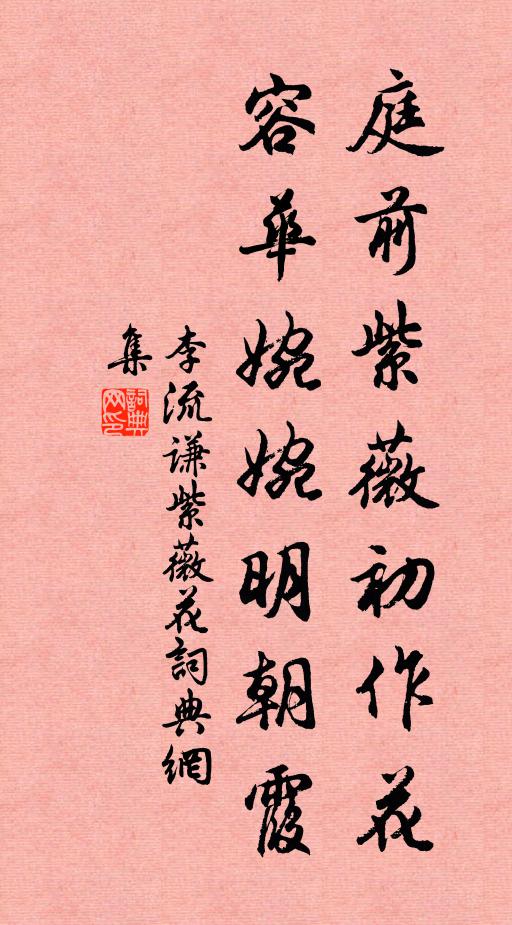 庭前紫薇初作花
容華婉婉明朝霞
李流謙紫薇花詞典網
集
詞典
网印